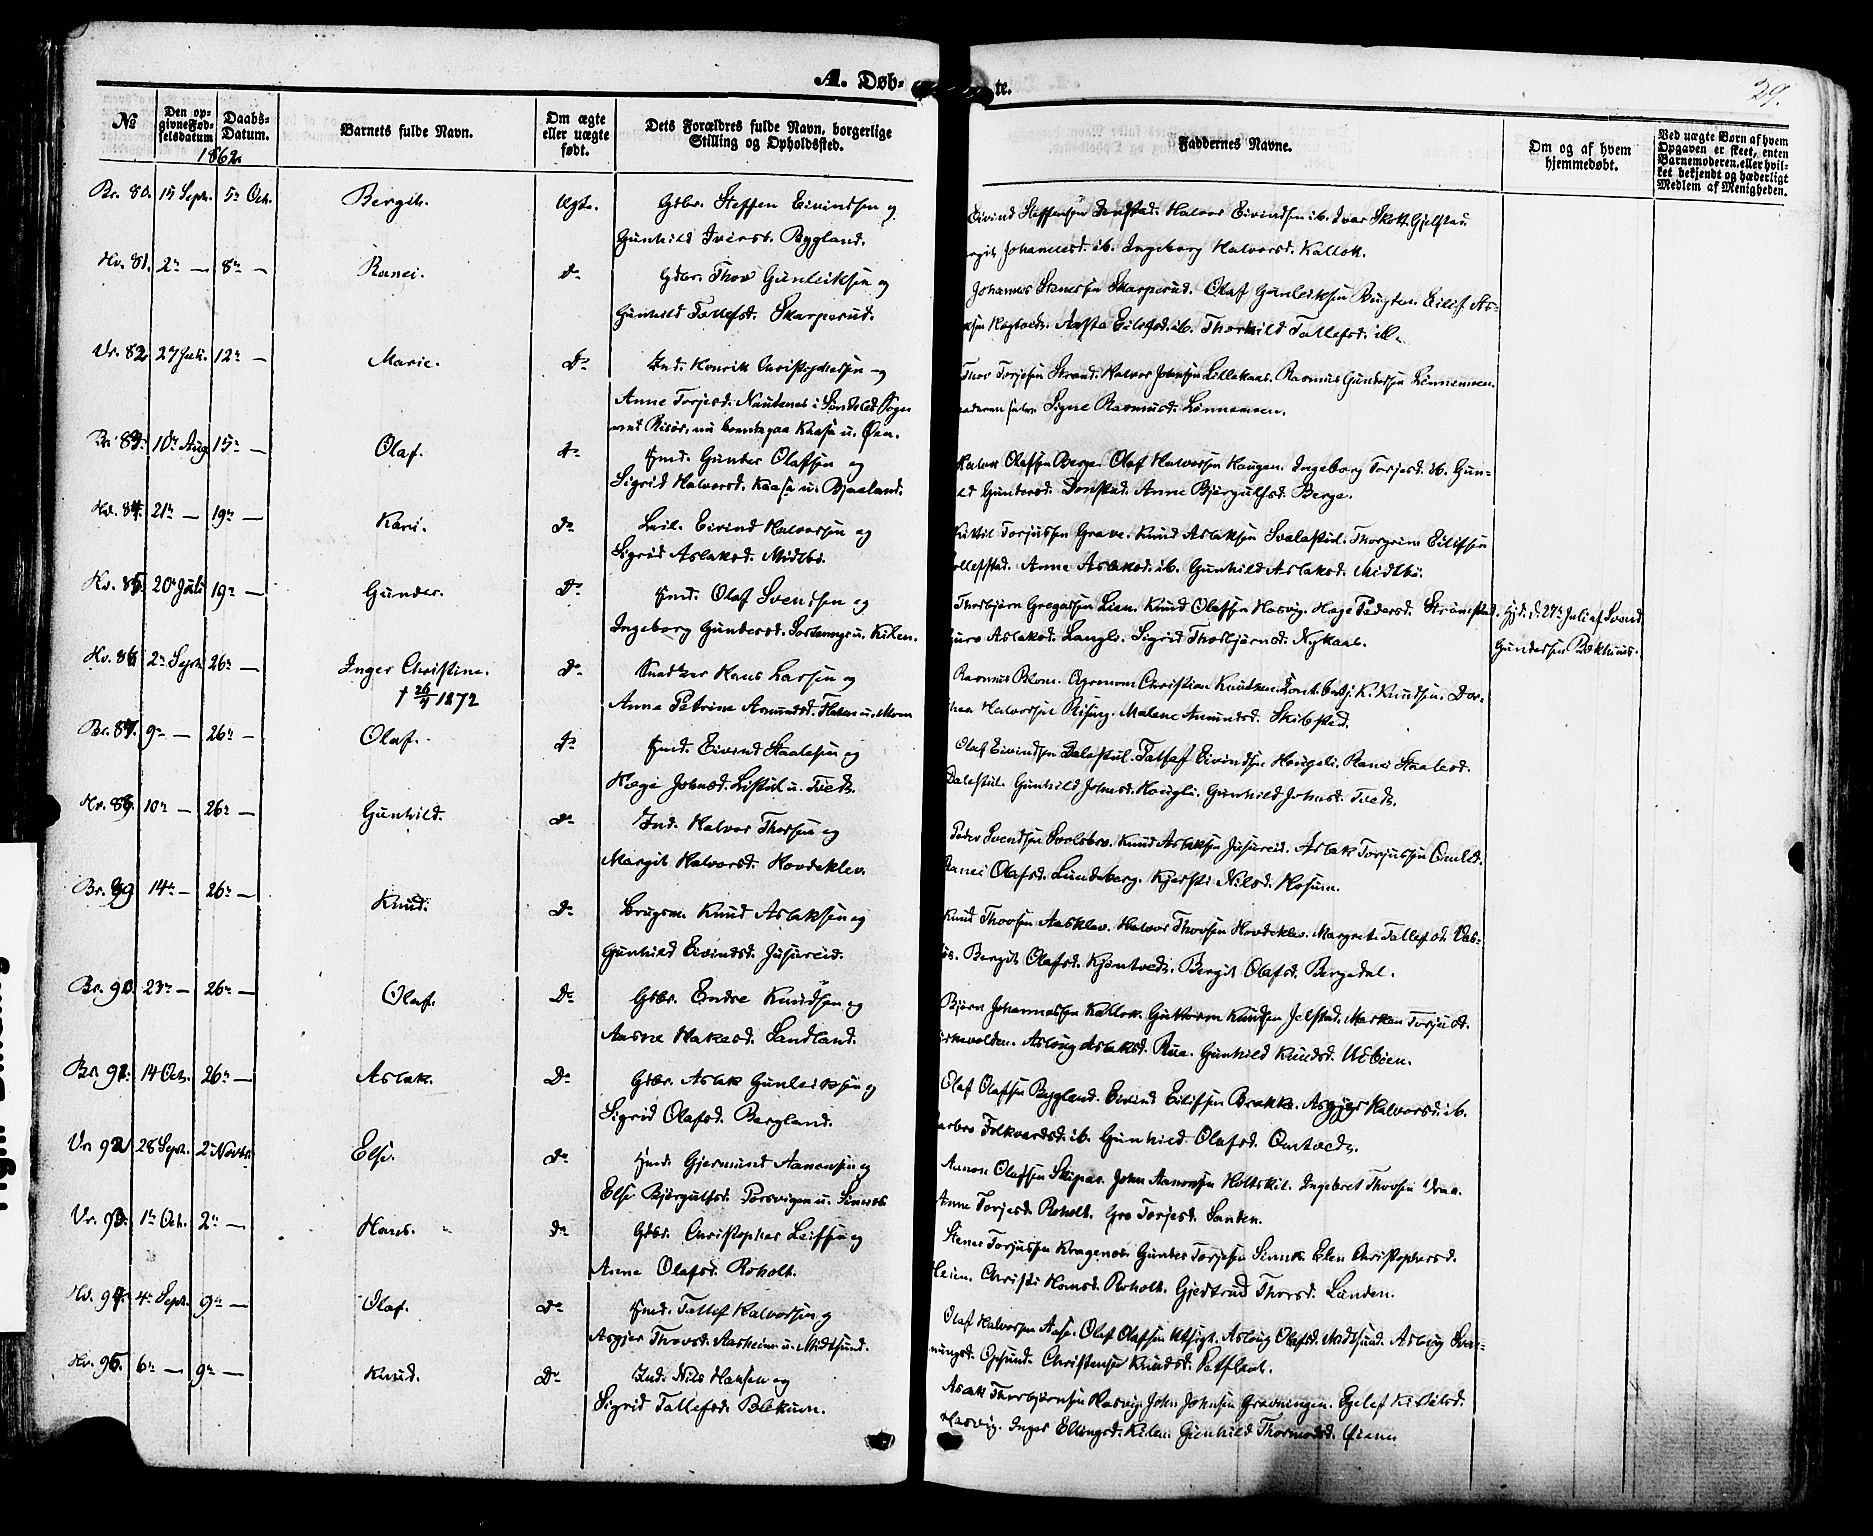 A. Døb-
te.
29.
№
Den op-
givne Fød-
selsdatum
Daabs-
Datum.
1862.
Barnets fulde Navn.
Om ægte
eller uægte
født.
Dets Forældres fulde Navn, borgerlige
Stilling og Opholdssted.
Faddernes Navne.
Om og af hvem
hjemmedøbt.
Ved uægte Børn af hvem
Opgaven er skeet, enten
Barnemoderen, eller hvil-
ket bekjendt og hæderligt
Medlem af Menigheden.
Br. 80. 15 Septr. 5te Oct. Bergit. Ægte. Gdbr. Steffen Eivindsen og
Gunhild Iversd. Bygland.
Eivind Steffensen Donstad. Halvor Eivindsen ib. Ivar Skott Gjelstad.
Johannesd. ib. Ingeborg Halvorsd. Kallok.
Hv. 81. 2n — 8n — Ranei. do Gdbr. Thov Gunleiksen og
Gunhild Tallefsd. Skarperud.
Johannes Stenersen Skarperud. Olaf Gunleiksen Bugten. Eilef As-
Aasta Eilefsd. ib. Thorhild Tallefsd. ib.
Vr. 82. 27 Juli. 12n — Marie. Do Ind. Henrik Christophersen og
Anne Torjesd. Nautenes i Søndeled Sogn
ved Risør, nu boende paa Kaasa u. Øen.
Thov Torjesen Strand. Halvor Johnsen Lillekaas. Rasmus Gundersen Lønnemoen.
Signe Rasmusd. Lønnemoen.
Br. 83. 10de Aug. 15n — Olaf. do Hmd. Gunder Olafsen og
Sigrid Halvorsd. Kaasa u. Bjaaland.
Halvor Olafsen Berge. Olaf Halvorsen Haugen. Ingeborg Torjesd. ib. Gun-
ld Gundersd. Donstad. Anne Bjørgulfsd. Berge.
Hv. 84. 21n — 19n — Kari. do Leil. Eivind Halvorsen og
Sigrid Aslaksd. Midtbø.
Kittil Torjussen Grave. Knud Aslaksen Svalestul. Thorgrim Eilefsen
Tollefstad. Anne Aslaksd. ib. Gunhild Aslaksd. Midtbø.
Hv. 85. 20de Juli 19n — Gunder. Do Hmd. Olaf Svendsen og
Ingeborg Gundersd. u. Kilen.
Thorbjørn Gregarsen Lien. Knud Olafsen Hasvig. Hæge Pedersd. Strømstad.
Guro Aslaksd. Langli. Sigrid Thorbjørnsd. Nykaas.
Hjd. d. 27de Juli af Svend
Gundersen Bakhuus.
Hv. 86. 2n Septr. 26n — Inger Christine. Do Snedker Hans Larsen og
† 26/4 1872
Anne Petrine Amundsd. u. Moen
Rasmus Blom. Agronom Christian Knudsen. K. Knudsen. Dor-
thea Halvorsen Rising. Malene Amundsd. Skibsted.
Br. 87. 9n — 26n — Olaf. do Hmd. Eivind Staalesen og
Hæge Johnsd. Listul u. Tvedt.
Olaf Eivindsen Dalestul. Tallef Eivindsen Haugeli. Ranei Staalesd.
Dalestul. Gunhild Johnsd. Haugli. Gunhild Johnsd. Tvedt.
Hv. 88. 10n — 26n — Gunhild. Do Ind. Halvor Thorsen og
Margit Halvorsd. Hovdeklev.
Peder Svendsen Svolsbro. Knud Aslaksen Jusureid. Aslak Torjussen Omli.
Ranei Olafsd. Lundeberg. Kjersti Nilsd. Kosum.
Br. 89 14n — 26n — Knud. Do Brugsm. Knud Aslaksen og
Gunhild Eivindsd. Jusureid.
Knud Thovsen Aasklev. Halvor Thovsen Hovdeklev. Margret Tallefsd.
Bergit Olafsd. Kjøntvedt. Bergit Olafsd. Bergedal.
Br. 90. 23n — 26n — Olaf. Do Gdbr. Endre Knudsen og
Aasne Hakesd. Landland.
Bjørn Johannessen Kallok. Guttorm Knudsen Jelstad. Marken Torjusd.
Aslaug Aslaksd. Rue. Gunhild Knudsd. Utbøen.
Br. 91. 14 Oct. 26n — Aslak. Do Gdbr. Aslak Gunleiksen og
Sigrid Olafsd. Bergland.
Olaf Olafsen Bygland. Eivind Eilefsen Brekke. Asgjer Halvorsd. ib.
Barbro Folkvardsd. ib. Gunhild Olafsd. Omtvedt.
Vr. 92. 28 Septr. 2n Novbr. Else. Do Hmd. Gjermund Aanonsen og
Else Bjørgulfsd. Torsvigen u. Sinnes
Aanon Olafsen Skipaa. John Aanonsen Holtskil. Ingebret Thovsen Vraa.
Anne Torjesd. Roholt. Gro Torjesd. Sanden.
Vr. 93. 1ste Oct. 2n — Hans. do Gdbr. Christopher Leifsen og
Anne Olafsd. Roholt.
Stener Torjussen Kragenes. Gunder Torjesen Sinnes. Elen Christophersd.
Heien. Christi Hansd. Roholt. Gjertrud Thorsd. Landen.
Hv. 94. 4n Septr. 9n — Olaf. do Hmd. Tallef Halvorsen og
Asgjer Thovsd. Aasheim u. Midtsund.
Olaf Halvorsen Aase. Olaf Olafsen Utsigt. Aslaug Olafsd. Midtsund. Aslaug Svei-
nungsd. Øysund. Christense Knudsd. Patsleal.
Hv. 95. 6n — 9n — Knud. Do Ind. Nils Hansen og
Sigrid Tallefsd. Blekum.
Asak Thorbjørnsen Hasvig. John Johnsen Gravningen. Egelef Kittilsd.
Hasvig. Inger Ellingsd. Kilen. Gunhild Thormodsd. Øiene.